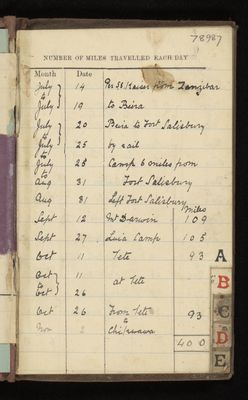 78987
NUMBER OF MILES TRAVELLED EACH DAY
Month Date
July 14 Per SS Kaiser from Zanzibar
to
July 19 to Beira
July 20 Beira to Fort Salisbury
to
July 25 by rail
July 25 Camp 6 miles from
to
Aug 31 Fort Salisbury
Aug 31 Left Fort Salisbury
Miles
Sept 12 Mt Darwin 109
Sept 27 Luia Camp 105
Oct 11 Tete 93
Oct 11
to at Tete
Oct 26
Oct 26 From Tete 93
to
Nov 2
400
A
B
C
D
E